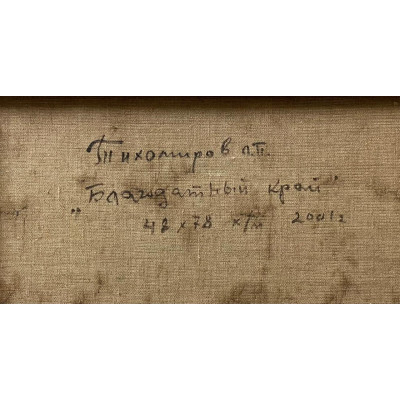 Тихомиров Л.П.
"Благодатный край"
48 х 78 х/м 2001г